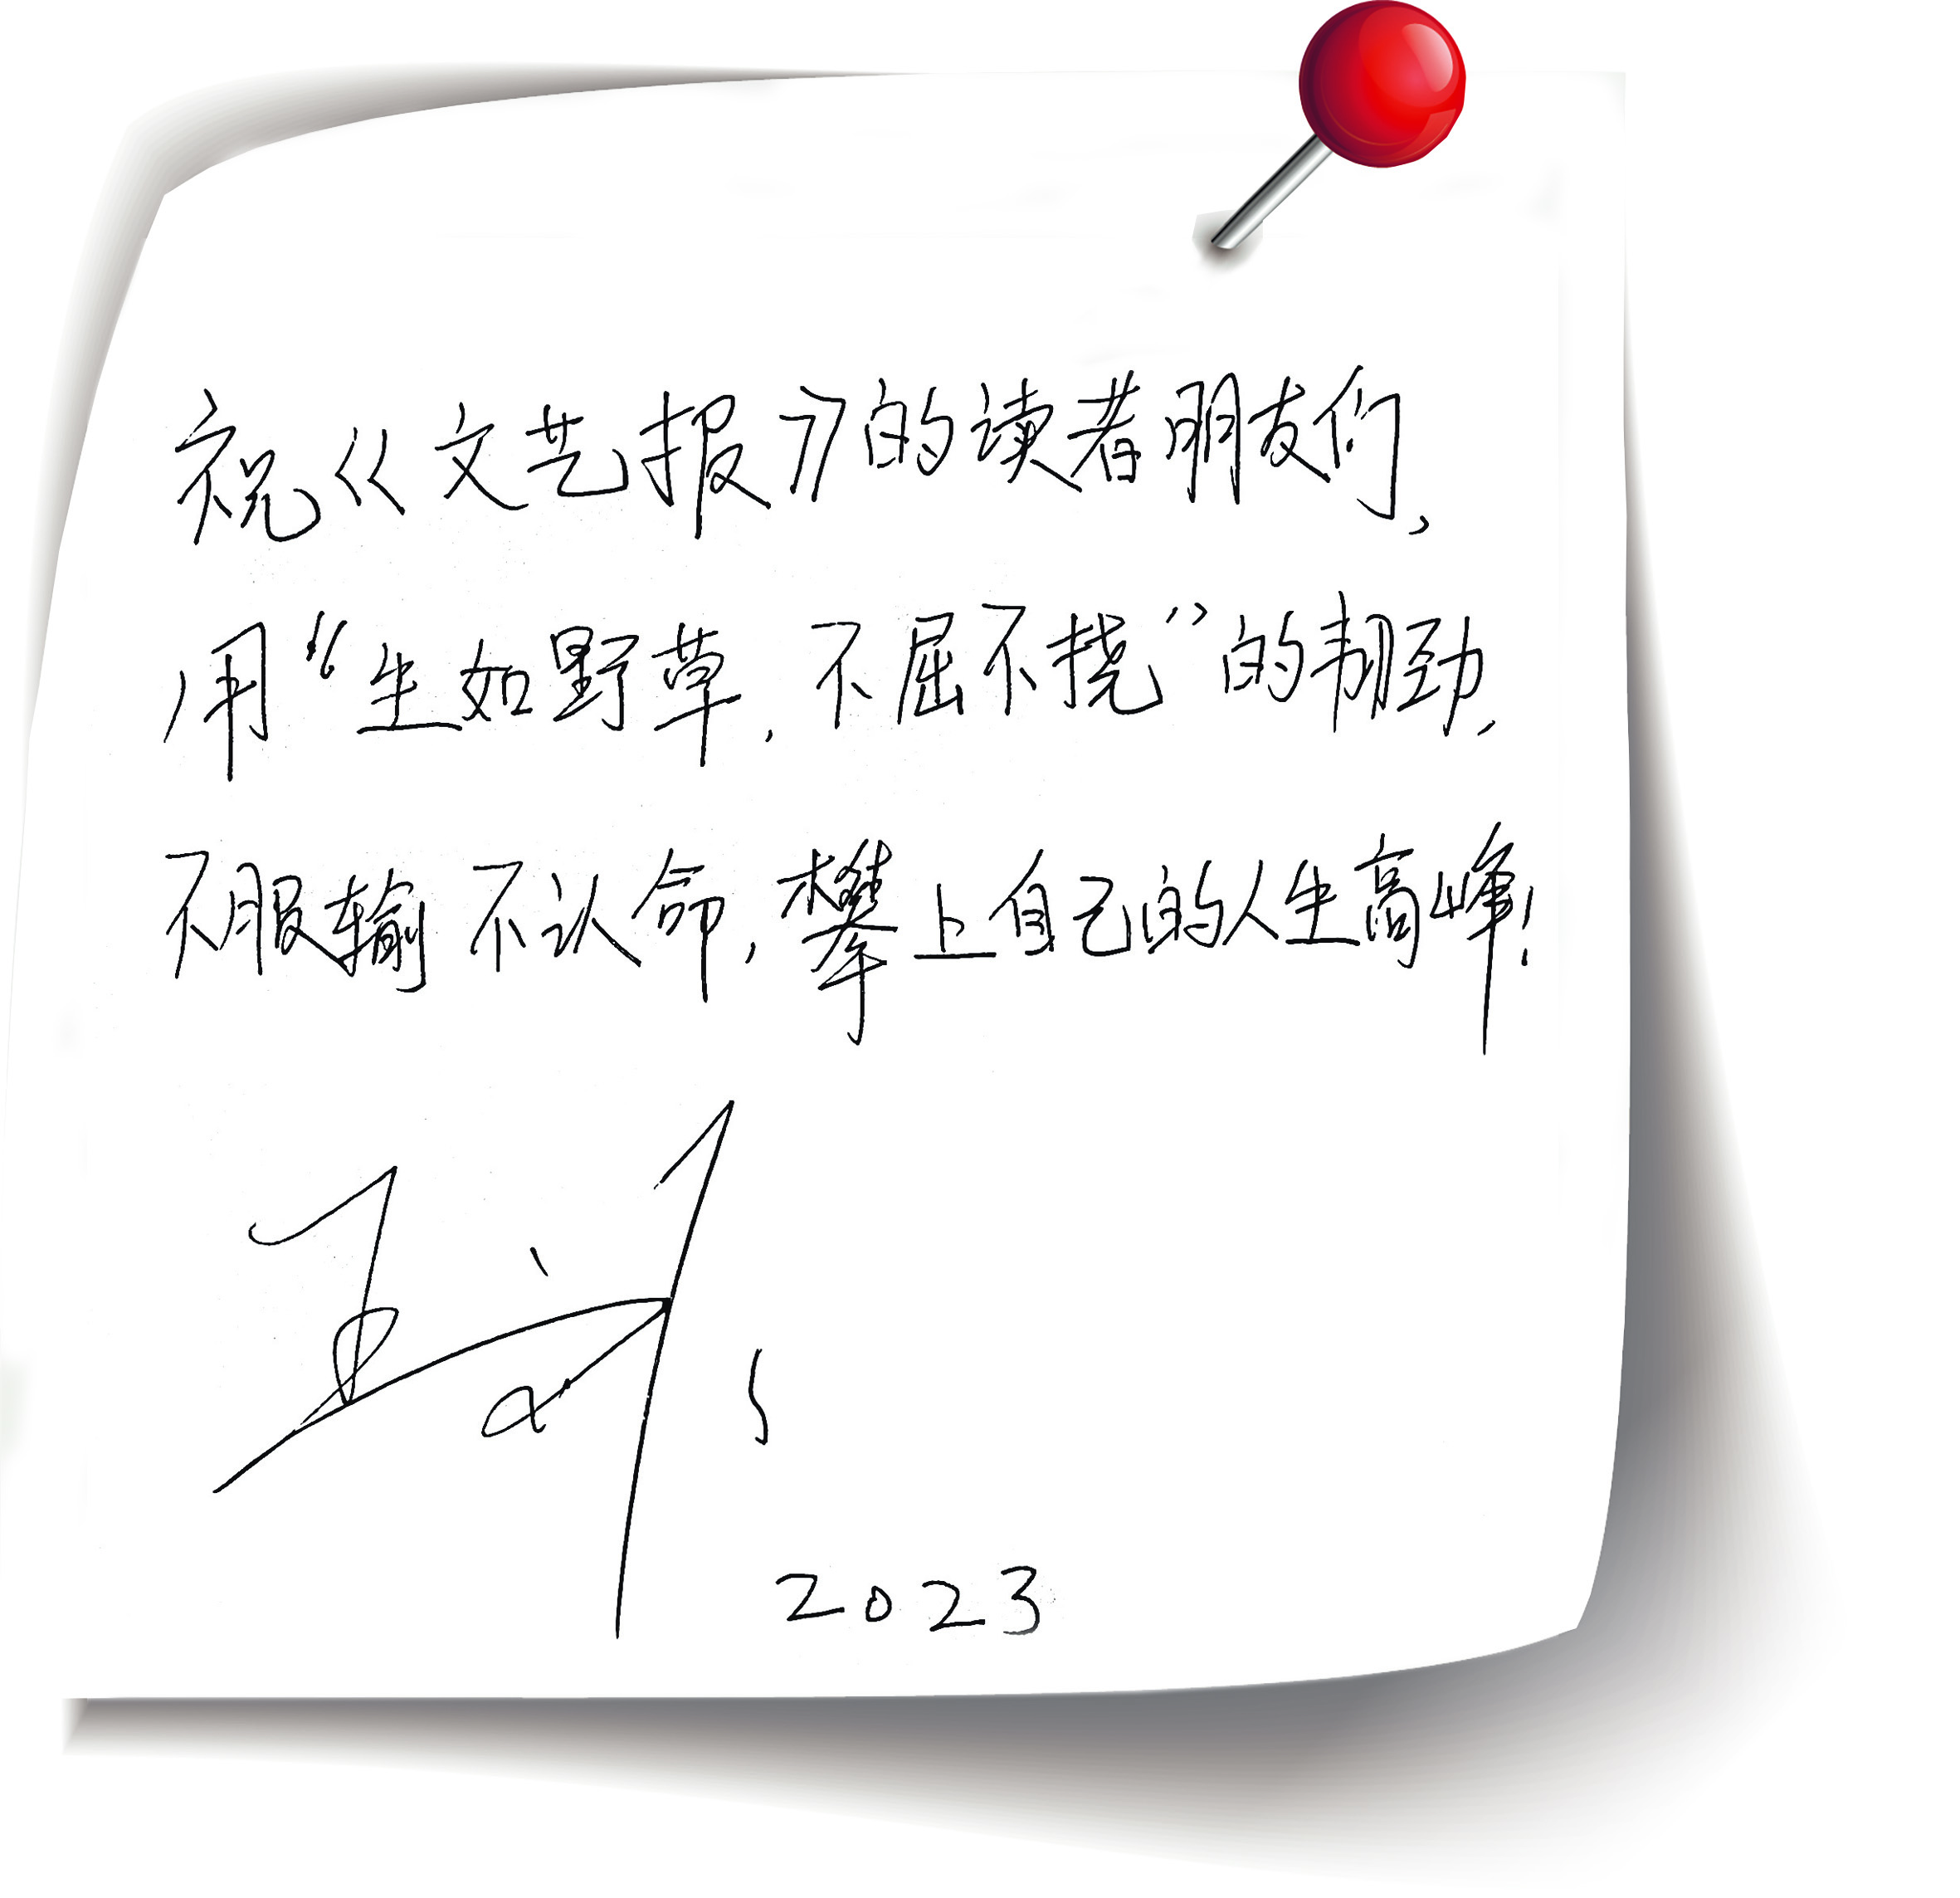 祝《文艺报》的读者朋友们，
用“生如野草，不屈不挠”的韧劲，
不服输 不认命，攀上自己的人生高峰！
2023